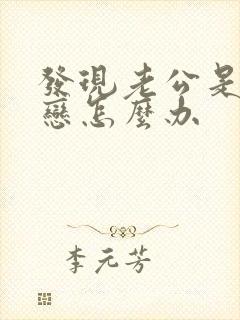 發現老公是
戀怎麼办
李元芳